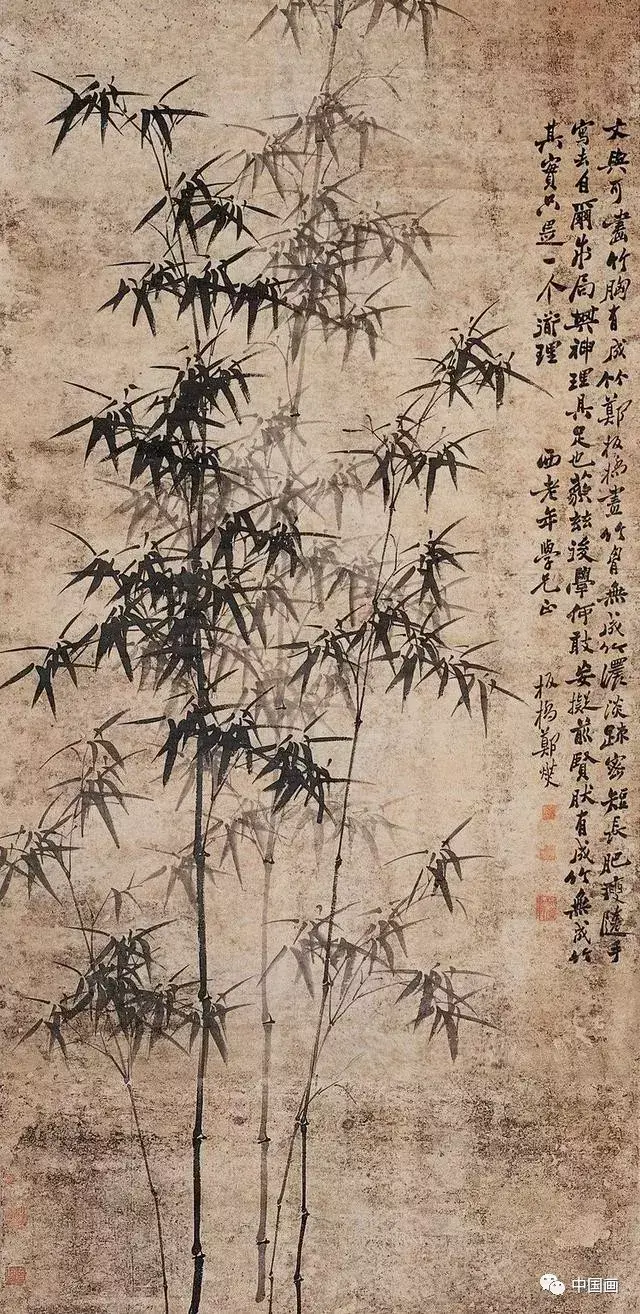 文與可畫竹胸有成竹鄭板橋畫竹胸無成竹濃淡疎密短長肥瘦隨手
寫去自爾成局其神理具足也藐茲後學何敢妄擬前賢然有成竹無成竹
其實只是一个道理
西老年學兄正
板橋鄭燮
中国画